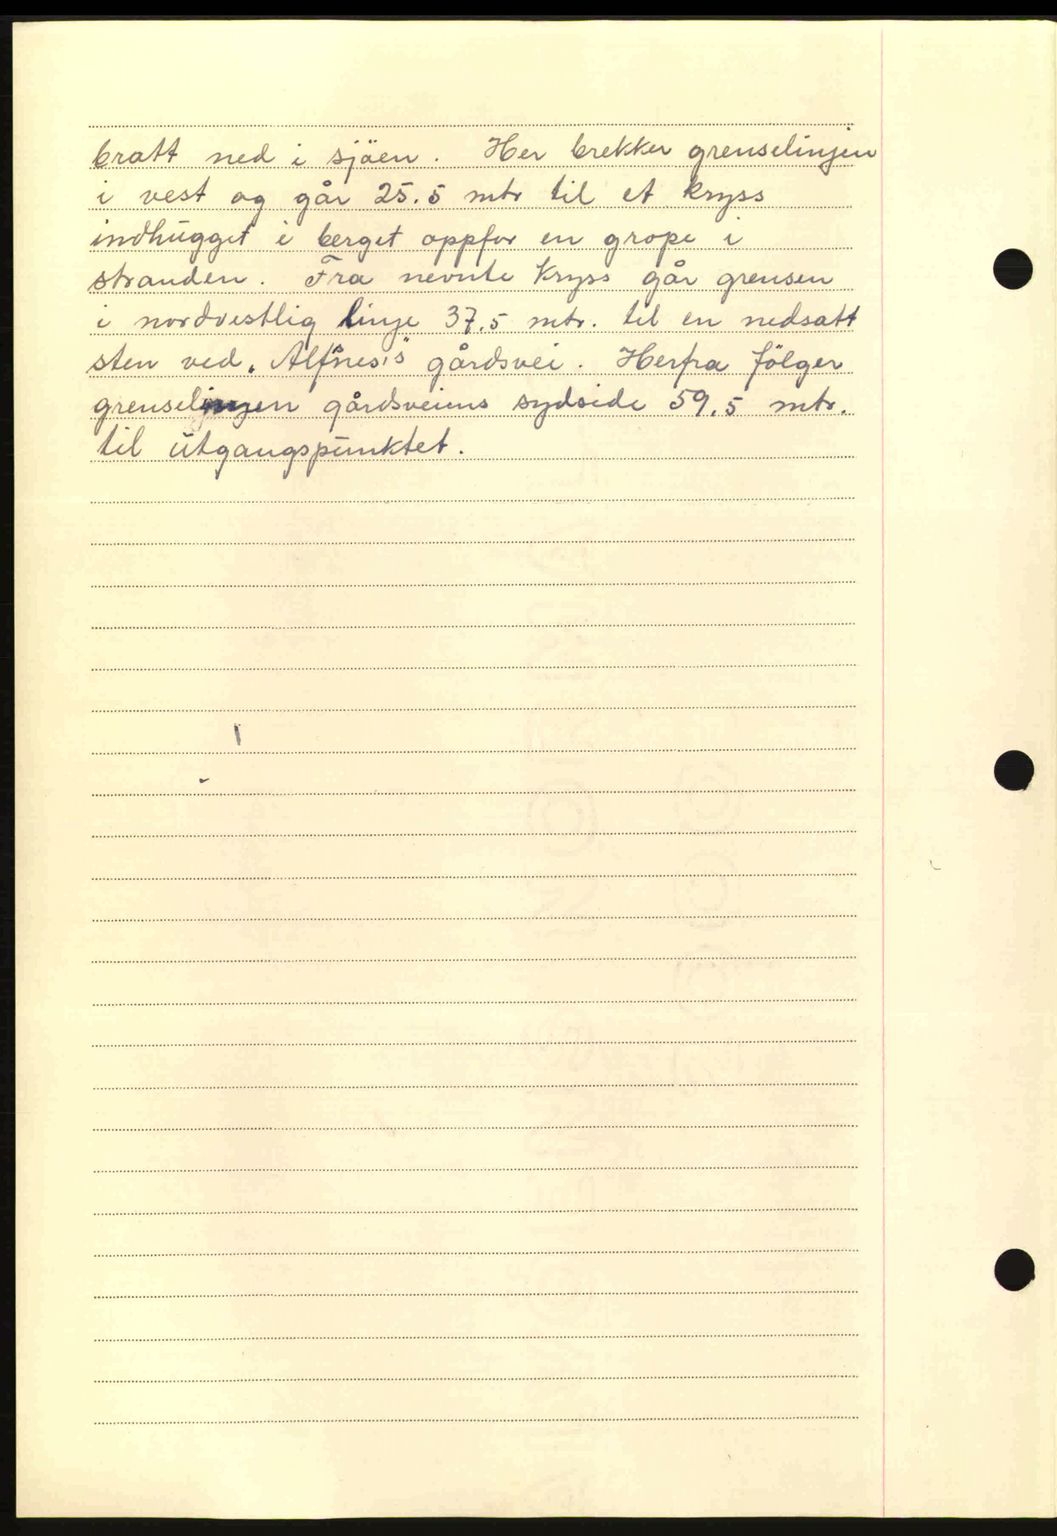 bratt ned i sjöen. Her brekker grenselinjen
i vest og går 25.5 mtr til et kryss
indhugget i berget oppfor en grope i
stranden. Fra nevnte kryss går grensen
i nordvestlig linje 37,5 mtr. til en nedsatt
sten ved „Alfnes's" gårdsvei. Herfra følger
grenselinjen gårdsveiens sydside 59,5 mtr.
til utgangspunktet.